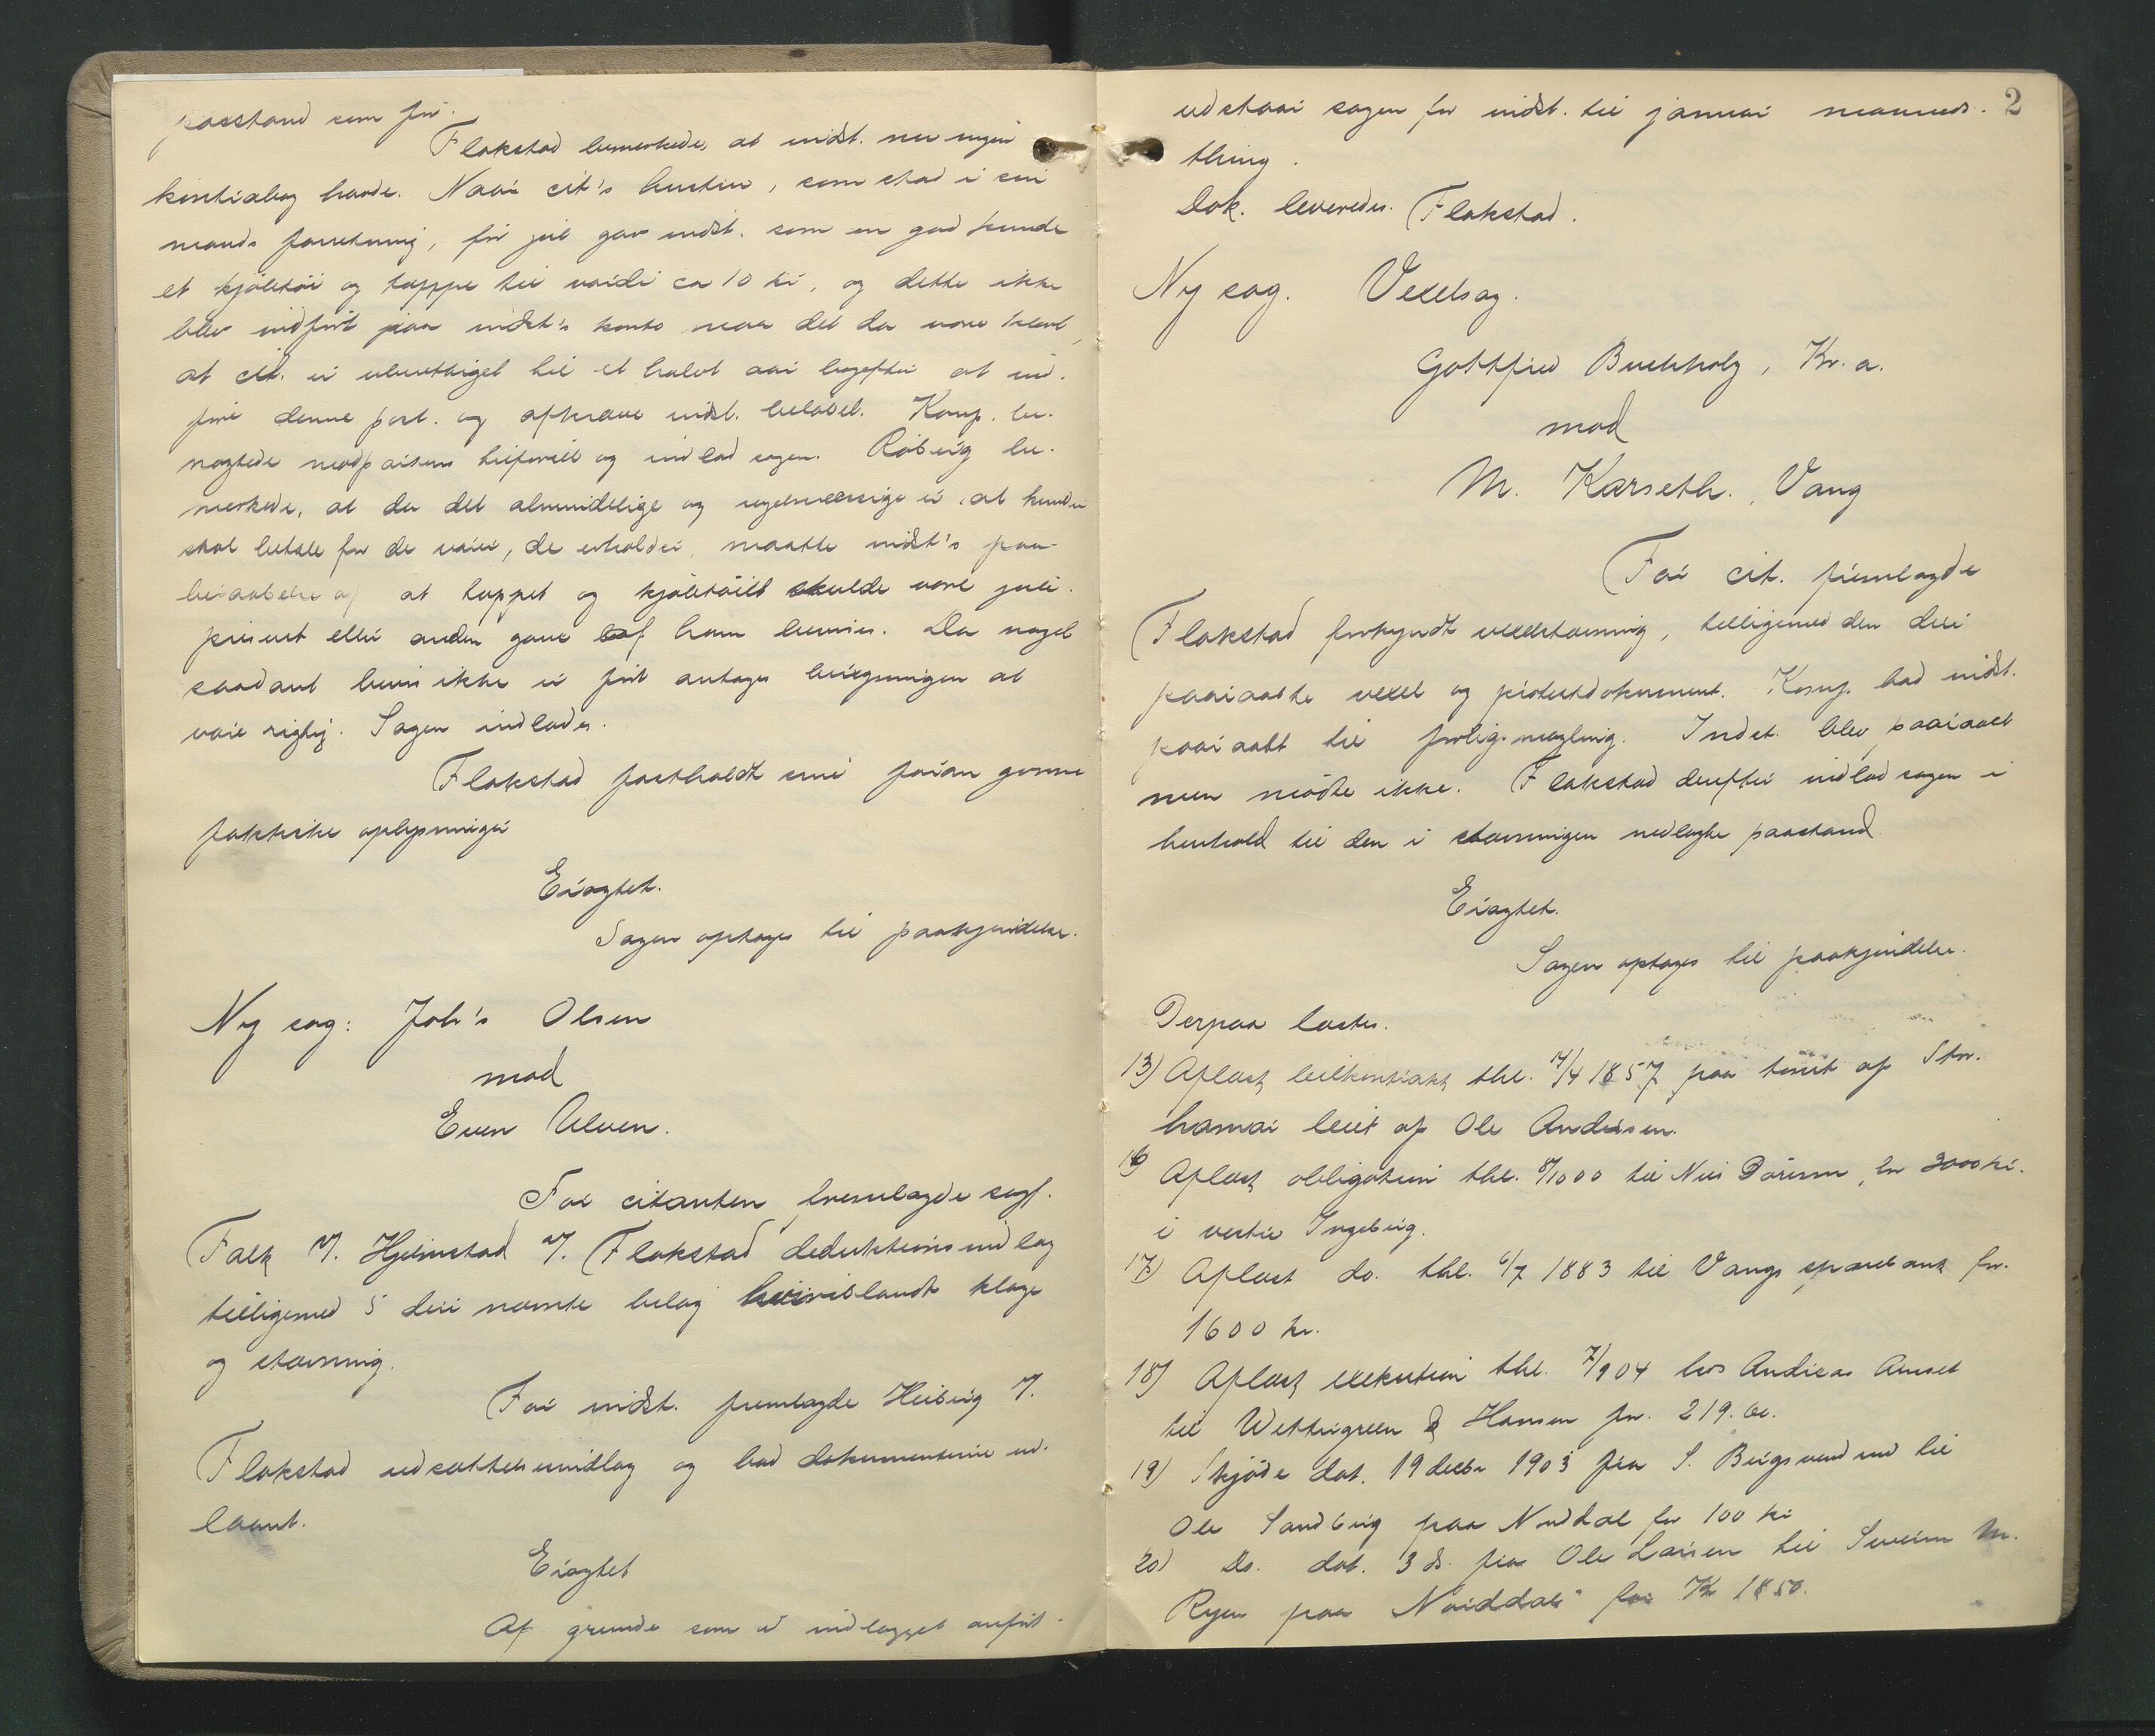 paastand som før.
Flakstad bemerkede, at indst. nu ingen
kontrabog havde. Naar cit's hustru, som stod i sin
mands forretning, før jul gav indst. som en god kunde
et kjøletøi og tæppe til værdi ca 10 kr, og dette ikke
blev indført paa indst's konto maa det da være klart,
at cit. er uberettiget til et halvt aar bagefter at ind-
føre denne post. og afkræve indst. beløbet. Komp. be-
nægtede modpartens tilførsel og indlod sagen. Raberg be-
merkede, at da det almindelige og regelmæssige er, at kunder
skal betale for de varer, de erholder, maatte indst's paa-
beraabelse af at tæppet og kjøletøiet skulde være jule-
præsent eller anden gave af ham bevises. Da noget
saadant bevis ikke er ført antages beregningen at
være rigtig. Sagen indlades.
Flakstad fastholdt sine foran givne
faktiske oplysninger
Eragtet.
Sagen optages til paakjendelse.
Ny sag: Joh's Olsen
mod
Even Ulven.
For citanten fremlagde sagf.
Falk v/. Hjelmstad v/. Flakstad deduktionsindlæg
tilligemed 5 deri nævnte belæg hvoriblandt klage
og stævning.
For indst. fremlagde Heiberg v/.
Flakstad udsættelsesindlæg og bad dokumenterne ud-
laant.
Eragtet
Af grunde som i indlægget anført
2
udstaar sagen for indst. til januar maaneds-
thing.
Dok. leveredes Flakstad.
Ny sag. Vexelsag.
Gottfred Buchholz, Kr.a.
mod
M. Karseth, Vang
For cit. fremlagde
Flakstad forkyndt vexelstævning, tilligemed den deri
paaraabte vexel og protestdokument. Komp. bad indst.
paaraabt til forligsmægling. Indst. blev paaraabt
men mødte ikke. Flakstad derefter indlod sagen i
henhold til den i stævningen nedlagte paastand
Eragtet.
Sagen optages til paakjendelse.
Derpaa læstes.
13) Aflæst, leiekontrakt thl. 14/4 1857 paa tomt af Stor-
hamar leiet af Ole Andersen.
16) Aflæst obligation thl. for 3000 kr.
i vestre Ingeberg.
17) Aflæst do. thl. 6/7 1883 til Vangs sparebank for
1600 kr.
18) Aflæst exekution thl. 7/9 04 hos Andreas
til Wettergreen & Hansen for 219.
19) Skjøde dat. 19 decbr 1903 fra S. Bergsvendsen til
Ole Sandberg paa Norddal for 100 kr
20) Do. dat. 3 ds. fra Ole Larsen til M.
Ryen paa Norddal for Kr 1850.